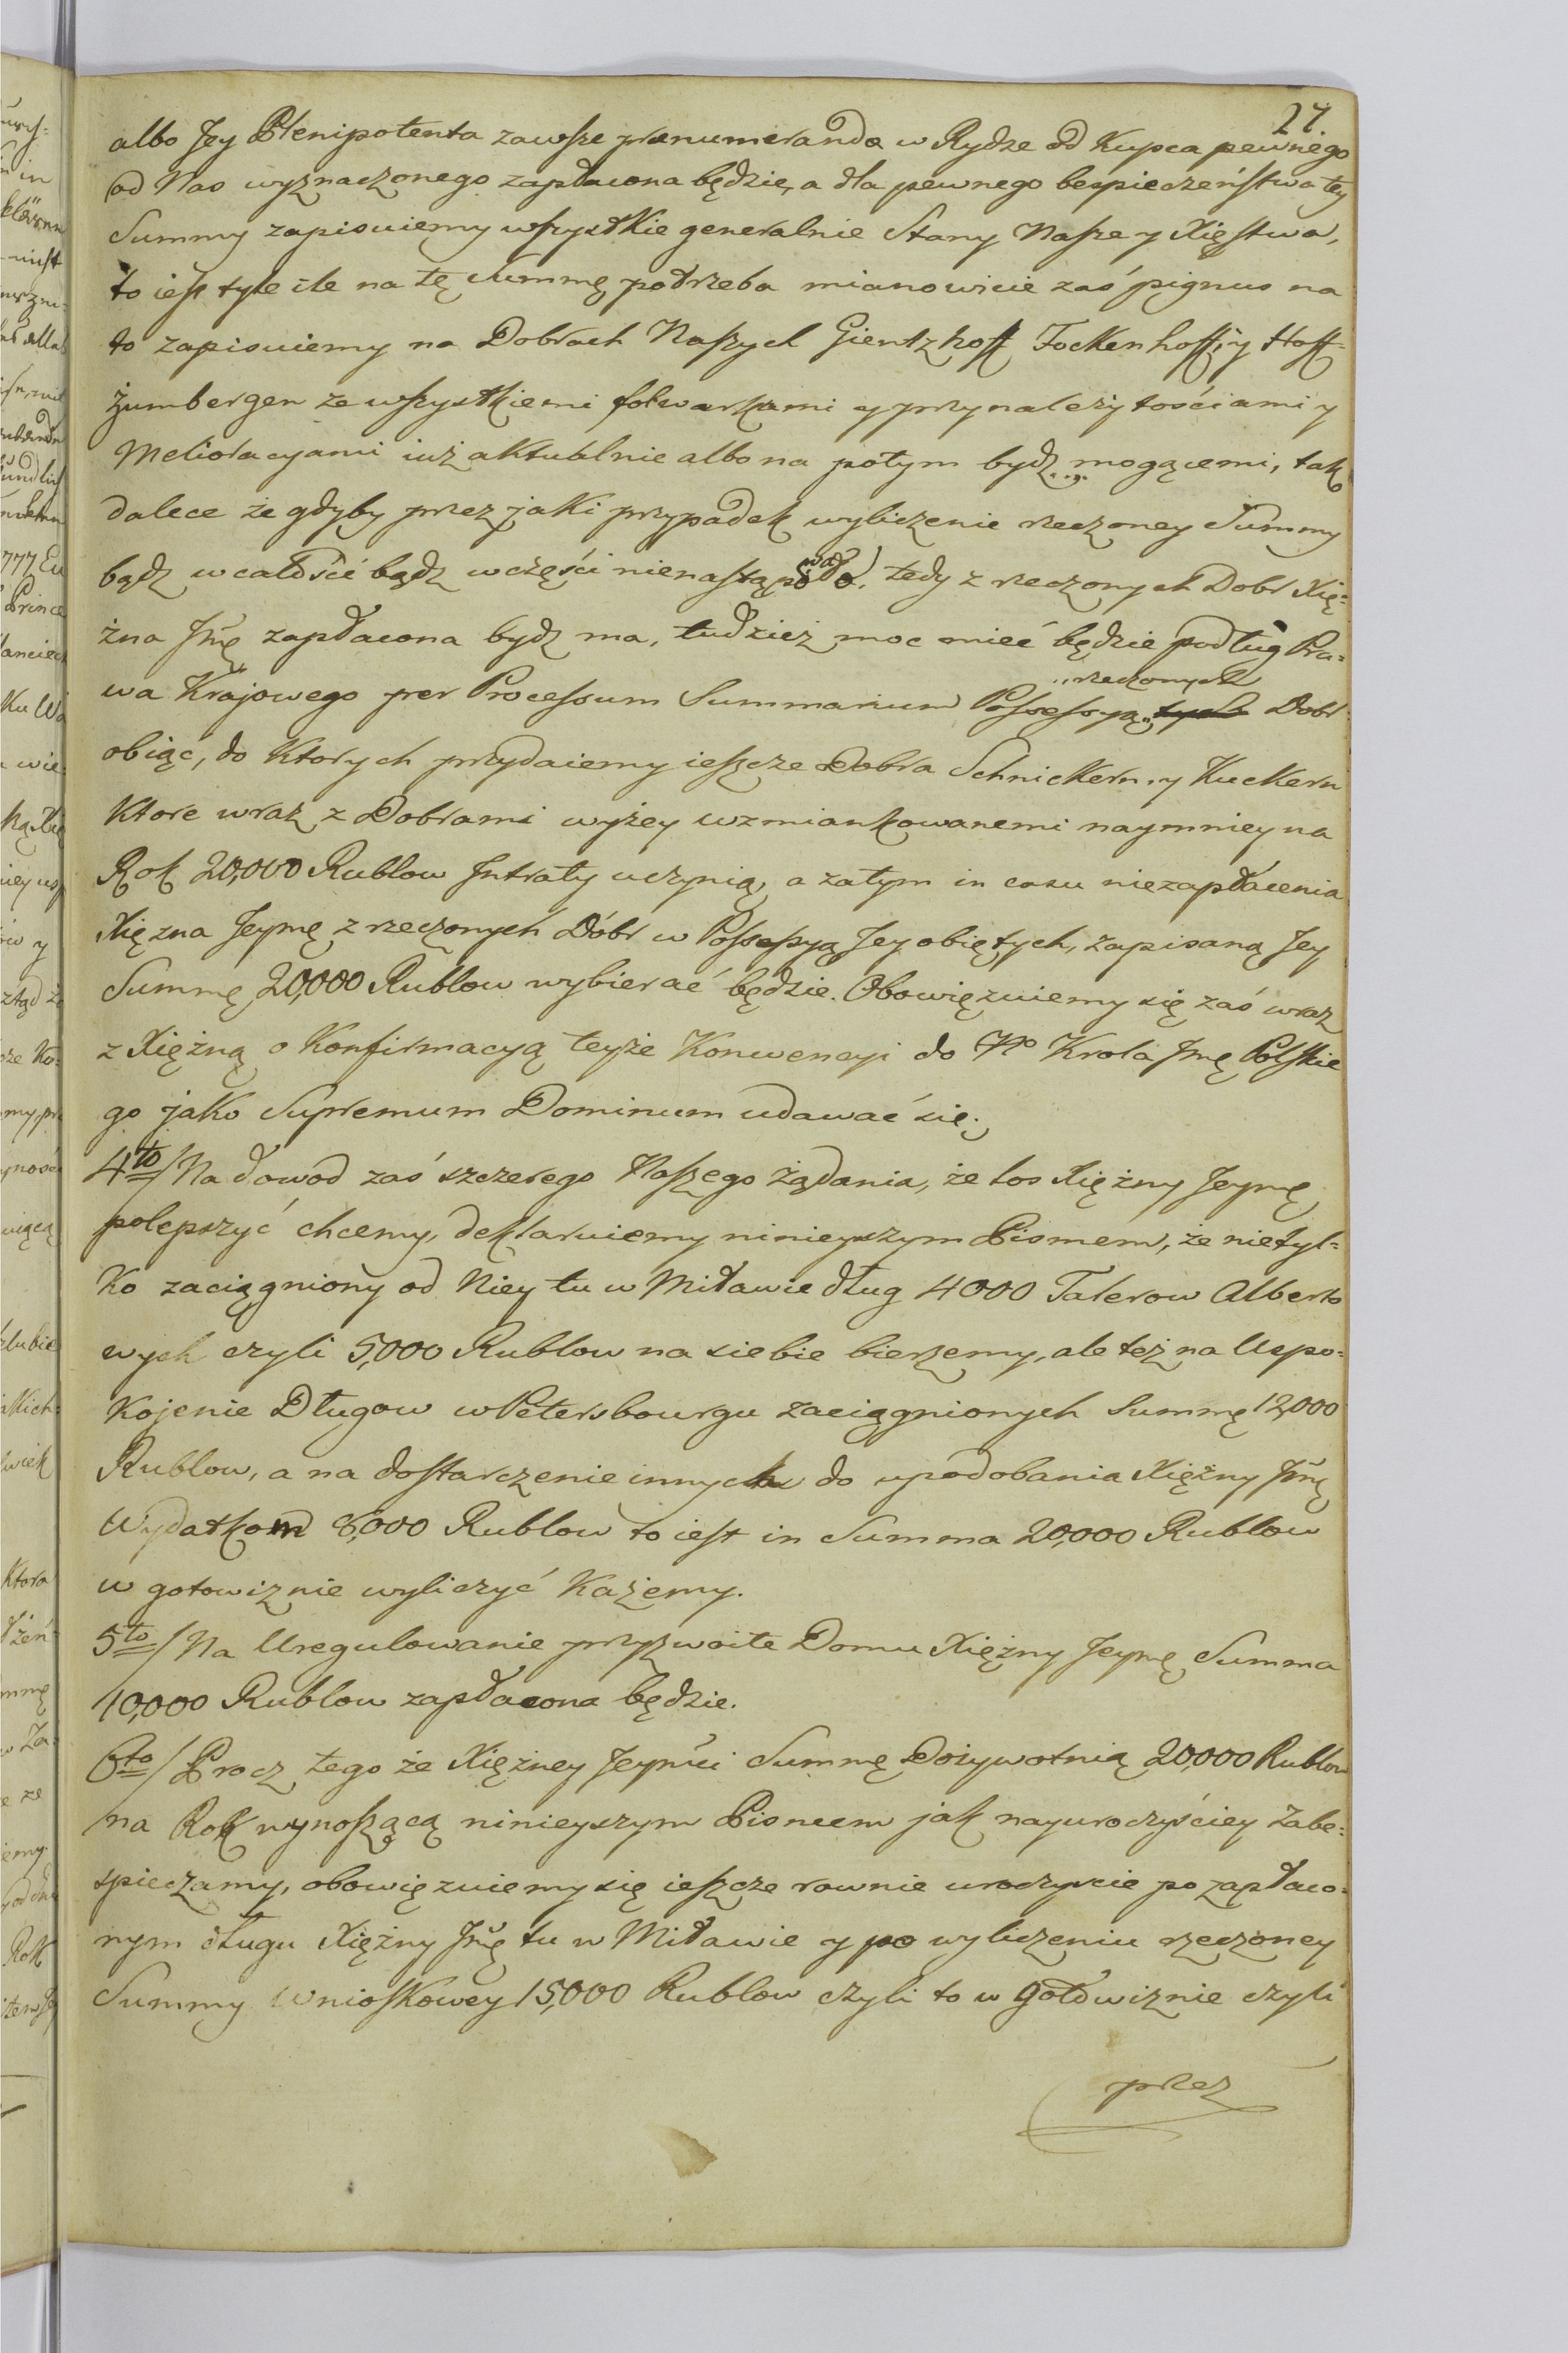 27.
albo Jey Plenipotenta zawsze prænumerando w Rydze od Kupca pewnego
od Nas wyznaczonego zapłacona będzie, a dla pewnego bespieczeństwa tey
Summy zapisuiemy wszystkie generalnie Stany Naszey Xięstwa,
to iest tyle ile na tę Summę potrzeba mianowicie zaś pignus na
to zapisuiemy na Dobrach Naszych Gientzhoff Fockenhoff, y Hoff-
zumbergen ze wszystkiemi folwarkami y przynależytościami y
Melioracyami iuż aktualnie albo na potym bydz mogącemi, tak
dalece że gdyby przez jaki przypadek wyliczenie rzeczoney Summy
bądz w całości bądz w części nienastąpiło, tedy z rzeczonych Dobr Xię=
żna Jmę zapłacona bydz ma, tudzież moc mieć będzie podług Pra=
wa Krajowego per Processum Summarium Possessyą tych rzeczonych Dobr
obiąć, do Ktorych przydaiemy ieszcze Dobra Schnickern y Kuckern
Ktore wraz z Dobrami wyżey wzmiankowanemi naymniey na
Rok 20,000 Rublow Intraty uczynią, a zatym in casu niezapłacenia
Xiężna Jeymę z rzeczonych Dóbr w Possessyą Jey obiętych, zapisaną Jey
Summę 20,000 Rublow wybierać będzie. Obowięzuiemy się zaś wraz
z Xiężną o Konfirmacyą teyże Konwencyi do Krola Jmę Polskie
go jako Supremum Dominum udawać się.
4to/ Na dowod zaś szczerego Naszego żądania, że los Xiężny Jeymę
polepszyć chcemy, deklaruiemy ninieyszym Pismem, że nietyl=
Ko zaciągniony od Niey tu w Mitawie dług 4000 Talerow Alberto
wych czyli 5,000 Rublow na siebie bierzemy, ale też na Uspo=
Kojenie Długow w Petersbourgu zaciągnionych Summę 12,000
Rublow, a na dostarczenie innych do upodobania Xiężny Jmę
Wydatkom 8,000 Rublow to iest in Summa 20,000 Rublow
w gotowiznie wyliczyć Każemy.
5to/ Na Uregulowanie przyzwoite Domu Xiężny Jeymę Summa
10,000 Rublow zapłacona będzie.
6to/ Procz tego że Xiężney Jeymci Summę Dożywotnią 20,000 Rublow
na Rok wynoszącą ninieyszym Pismem jak nayuroczyściey Zabe=
spieczamy, obowięzuiemy się ieszcze rownie uroczyscie po zapłaco=
nym długu Xiężny Jmę tu w Mitawie y po wyliczeniu rzeczoney
Summy Wnioskowey 15,000 Rublow czyli to w gotowiznie czyli
przez